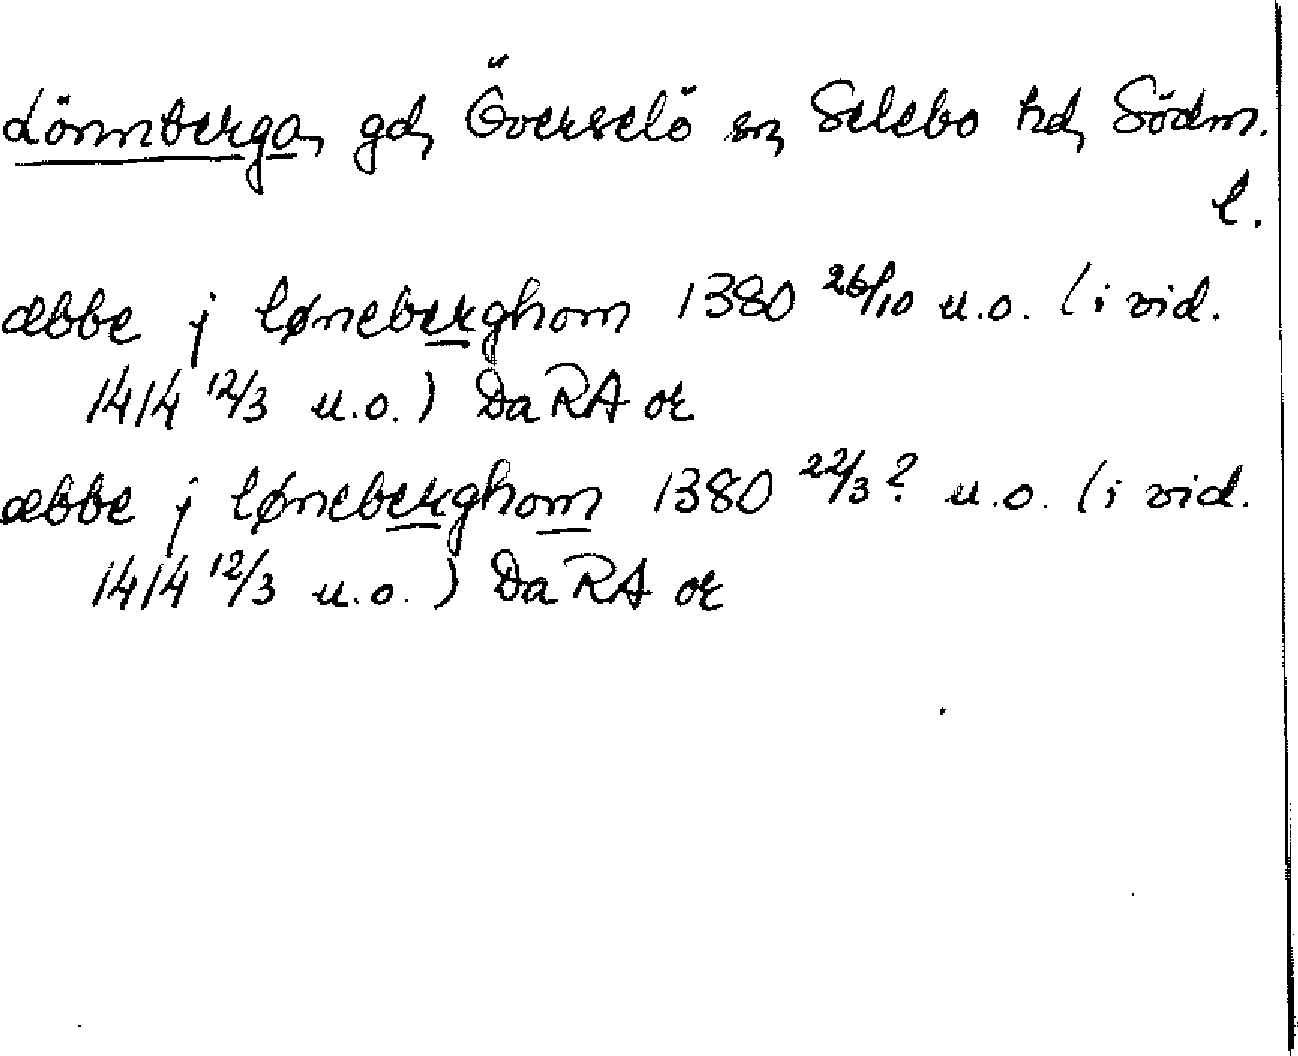 Lönnberga, gd, Överselö sn, Selebo hd, Södm.
l.
æbbe j løneberghom 1380 26/10 u.o. (i vid.
1414 12/3 u.o.) Da RA or
æbbe j løneberghom 1380 22/3? u.o. (i vid.
1414 12/3 u.o.) Da RA or